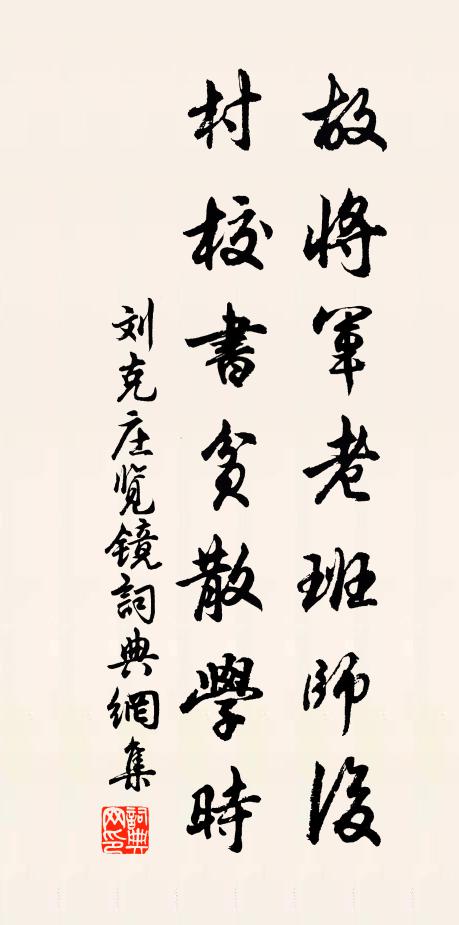 故將軍老班師後
村校書貧散學時
刘克庄览镜詞典網集
詞典网印